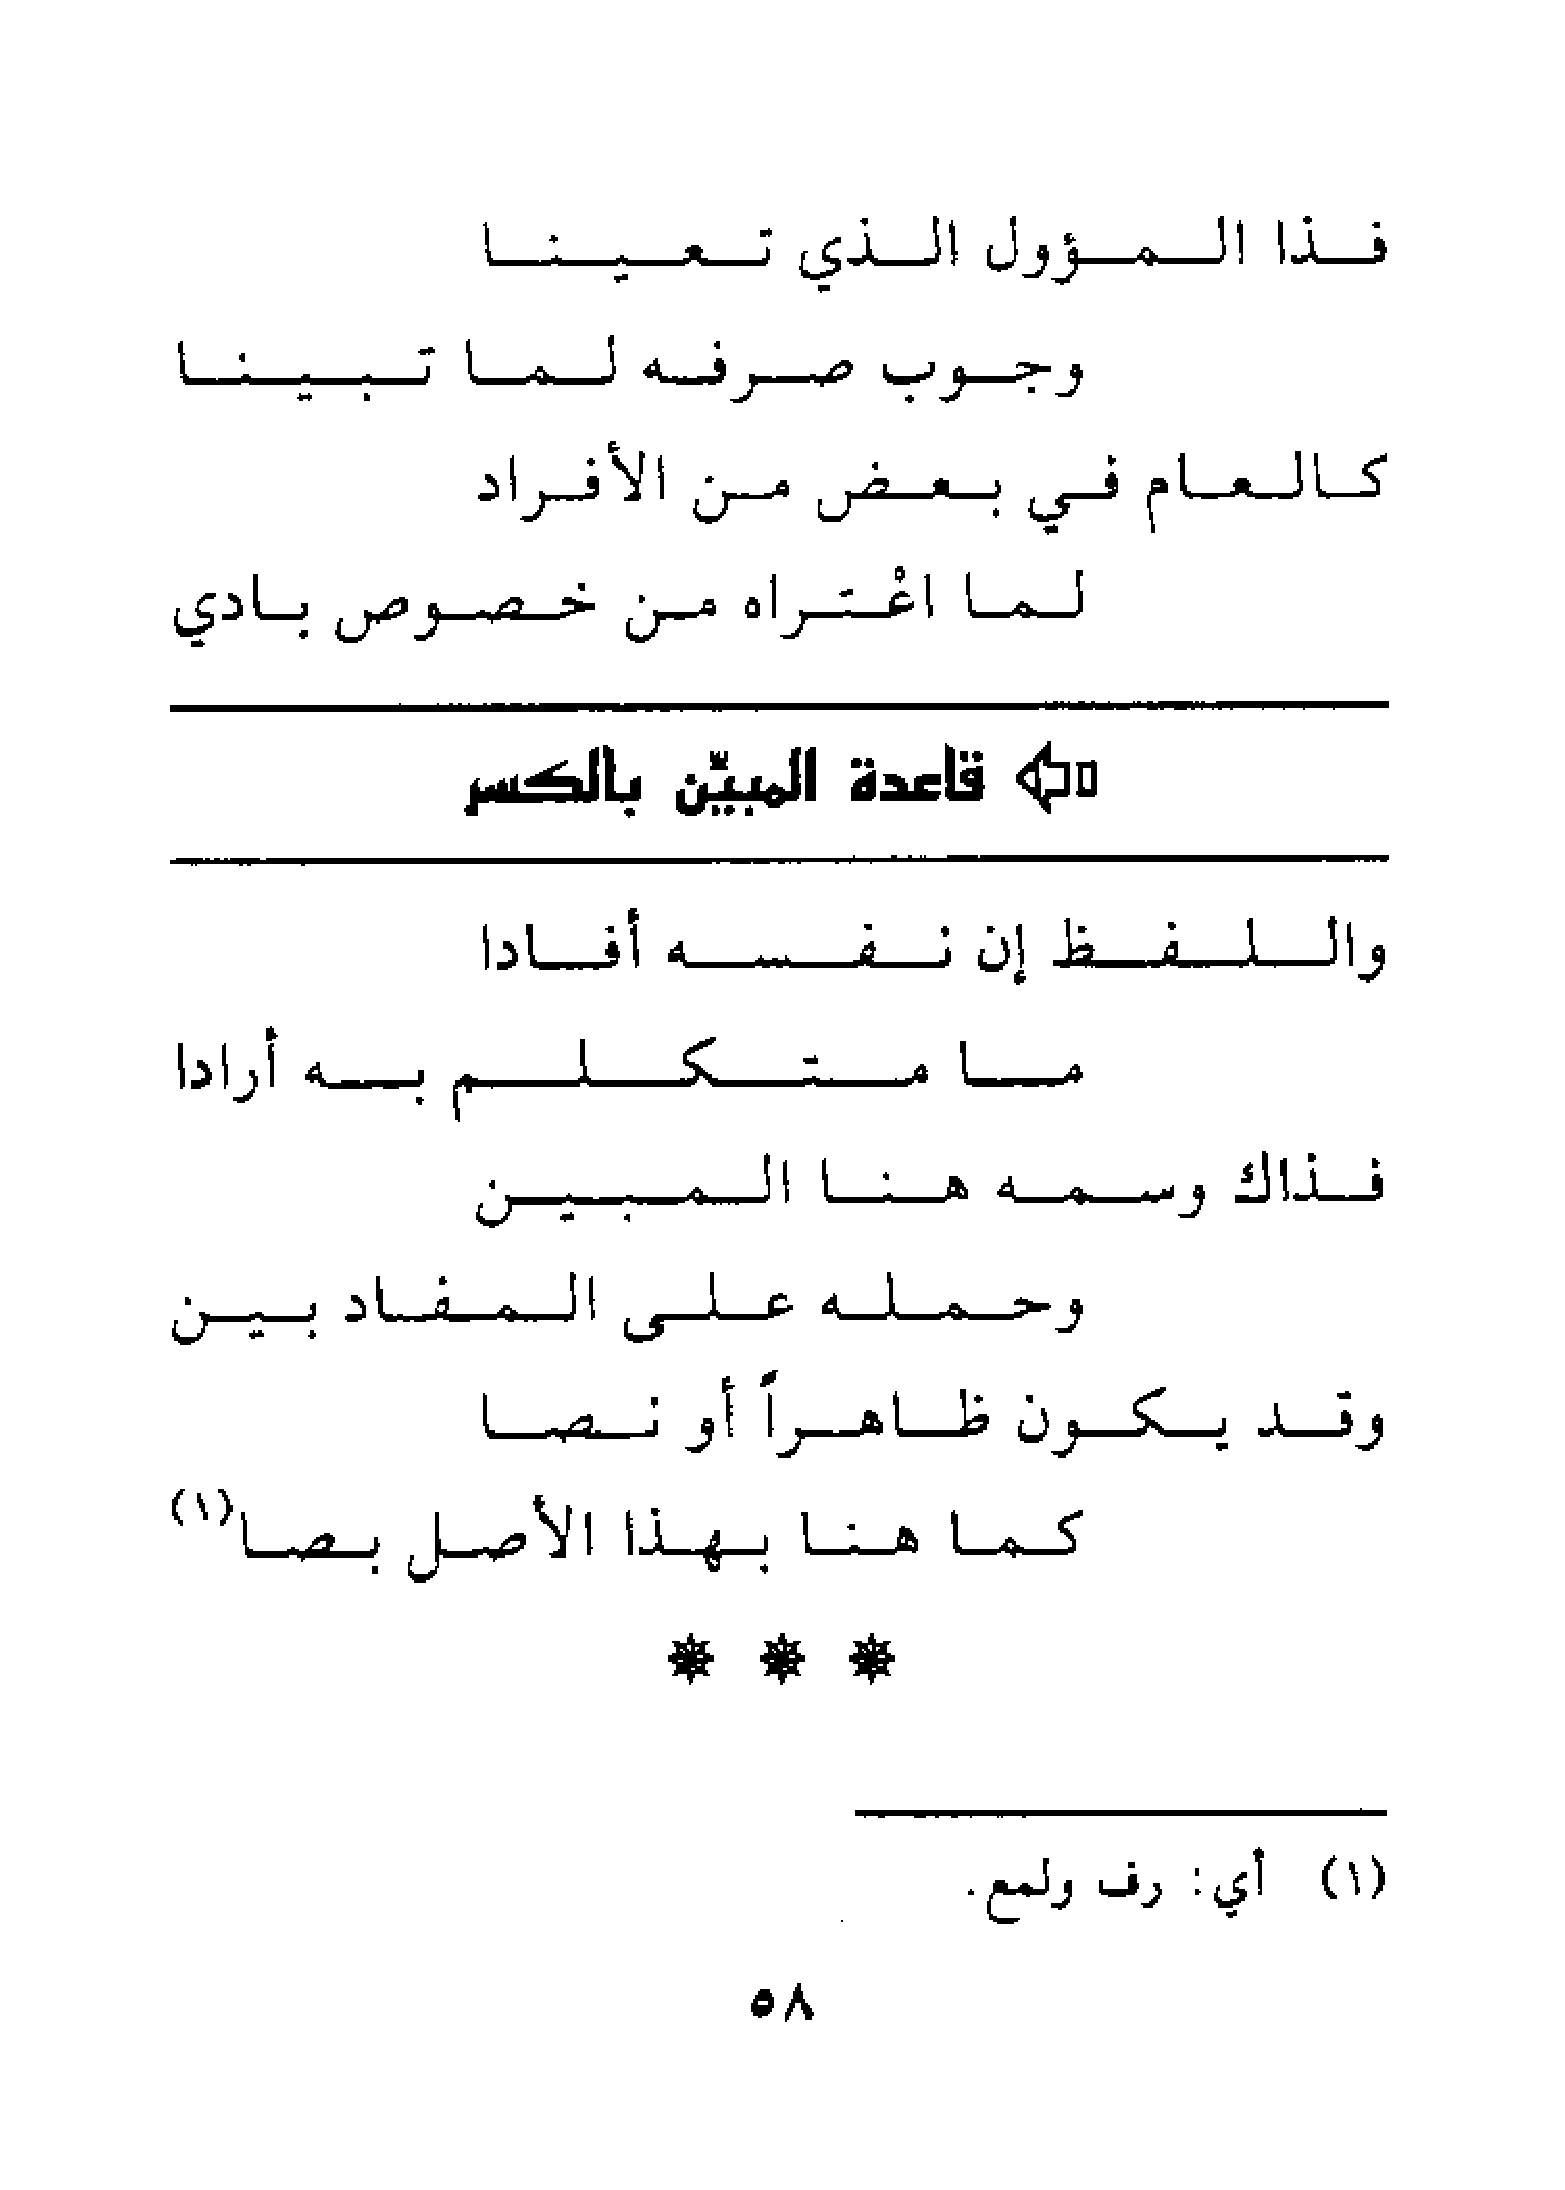 فذا المؤول الذي تعينا
وجوب صرفه لما تبينا
كالعام في بعض من الأفراد
لما اعْتراه من خصوص بادي
قاعدة المبيّن بالكسر
واللفظ إن نفسه أفادا
ما متكلم به أرادا
فذاك وسمه هنا المبين
وحمله على المفاد بين
وقد يكون ظاهراً أو نصا
كما هنا بهذا الأصل بصا(١)
(١) أي: رف ولمع.
٥٨